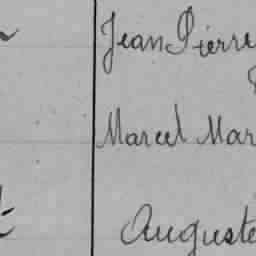 Jean Pierre
Marcel Mar
Auguste